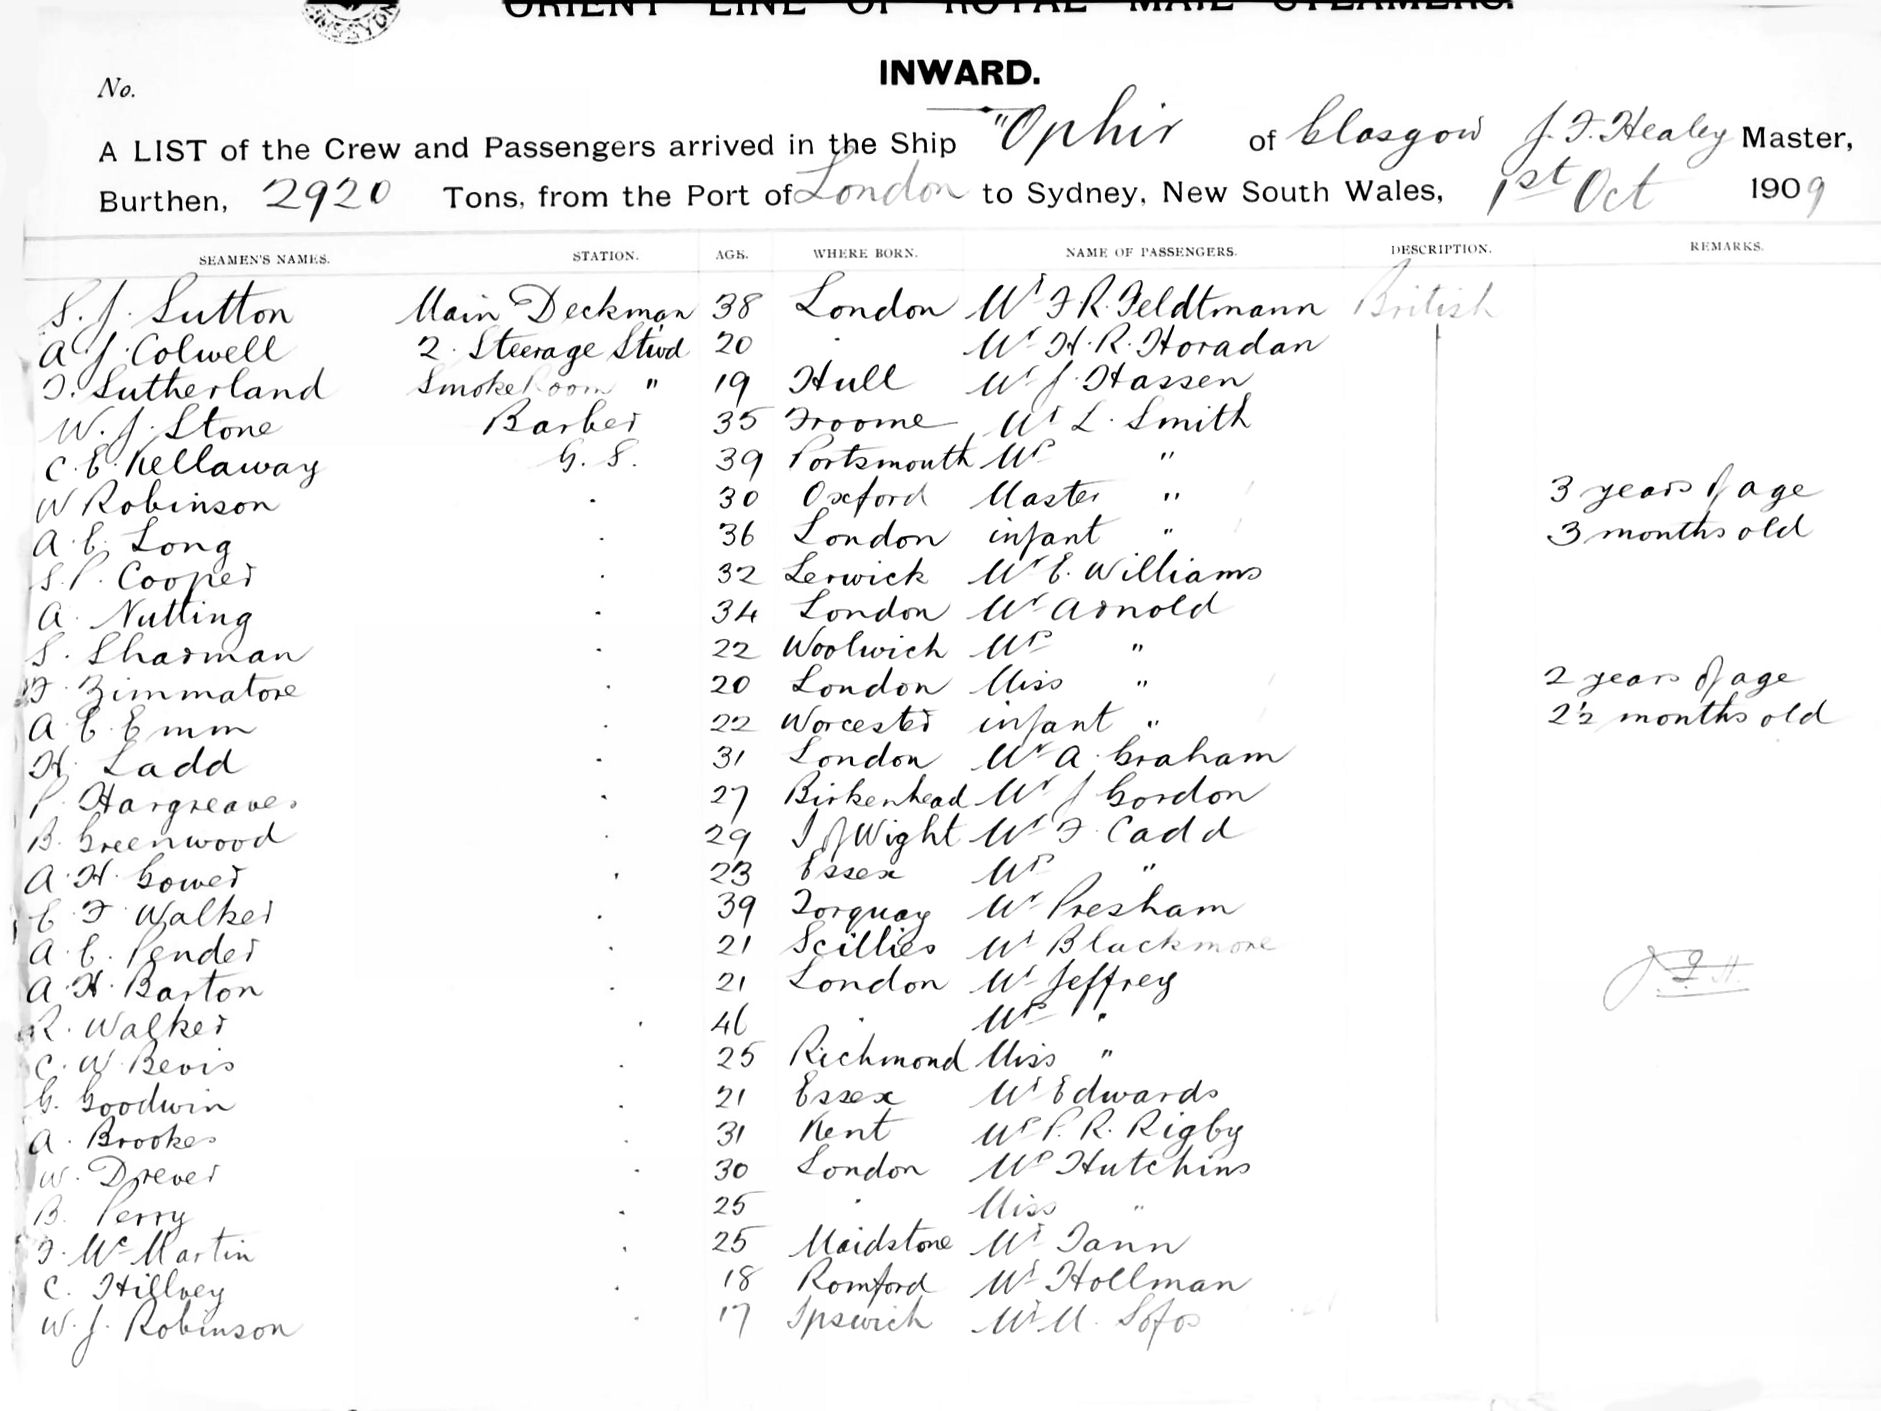 ORIENT LINE OF ROYAL MAIL STEAMERS.
INWARD.
No.
A LIST of the Crew and Passengers arrived in the Ship "Ophir of Glasgow J. F. Healey Master,
Burthen, 2920 Tons, from the Port of London to Sydney, New South Wales, 1st Oct 1909
SEAMEN'S NAMES. STATION. AGE. WHERE BORN. NAME OF PASSENGERS. DESCRIPTION. REMARKS.
S. J. Sutton Main Deckman 38 London Mr F. R. Feldtmann British
A. J. Colwell 2. Steerage Stwd 20 " Mr H. R. Horadan
F. Sutherland Smoke Room " 19 Hull Mr J. Hassen
W. J. Stone Barber 35 Froome Mr L. Smith
C. E. Kellaway G. S. 39 Portsmouth Mrs "
W Robinson . 30 Oxford Master " 3 years of age
A. E. Long . 36 London infant " 3 months old
S. P. Cooper . 32 Lerwick Mr E. Williams
A. Nutting . 34 London Mr Arnold
S. Sharman . 22 Woolwich Mrs "
F. Zimmatore . 20 London Miss " 2 years of age
A. E. Emm . 22 Worcester infant " 2½ months old
H. Ladd . 31 London Mr A. Graham
P. Hargreaves . 27 Birkenhead Mr J Gordon
B. Greenwood . 29 I of Wight Mr F. Cadd
A. H. Gower . 23 Essex Mrs "
E. F. Walker . 39 Torquay Mr Presham
A. E. Pender . 21 Scillies Mr Blackmore
A. H. Barton . 21 London Mr Jeffrey J. F. H.
R. Walker . 46 . Mrs "
C. W. Bevis . 25 Richmond Miss "
G. Goodwin . 21 Essex Mr Edwards
A. Brookes . 31 Kent Mrs P. R. Rigby
W. Drever . 30 London Mrs Hutchins
B. Perry . 25 . Miss "
F. McMartin . 25 Maidstone Mr Tann
C. Hillvey . 18 Romford Mr Hollman
W. J. Robinson . 17 Ipswich Mr M. Sofos